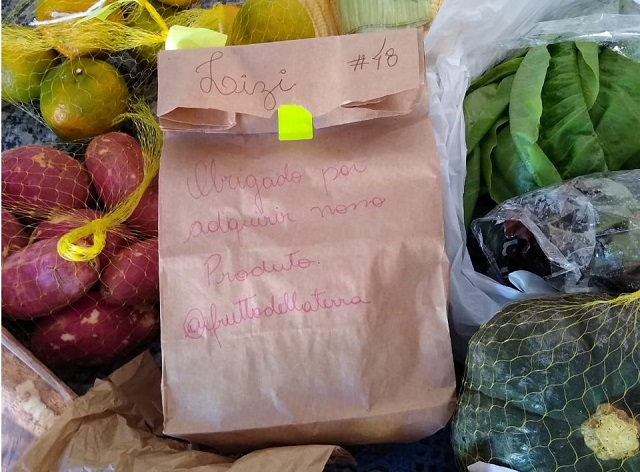 Lizi #18
Obrigado por
adquirir nosso
Produto.
@ifruttidellaterra